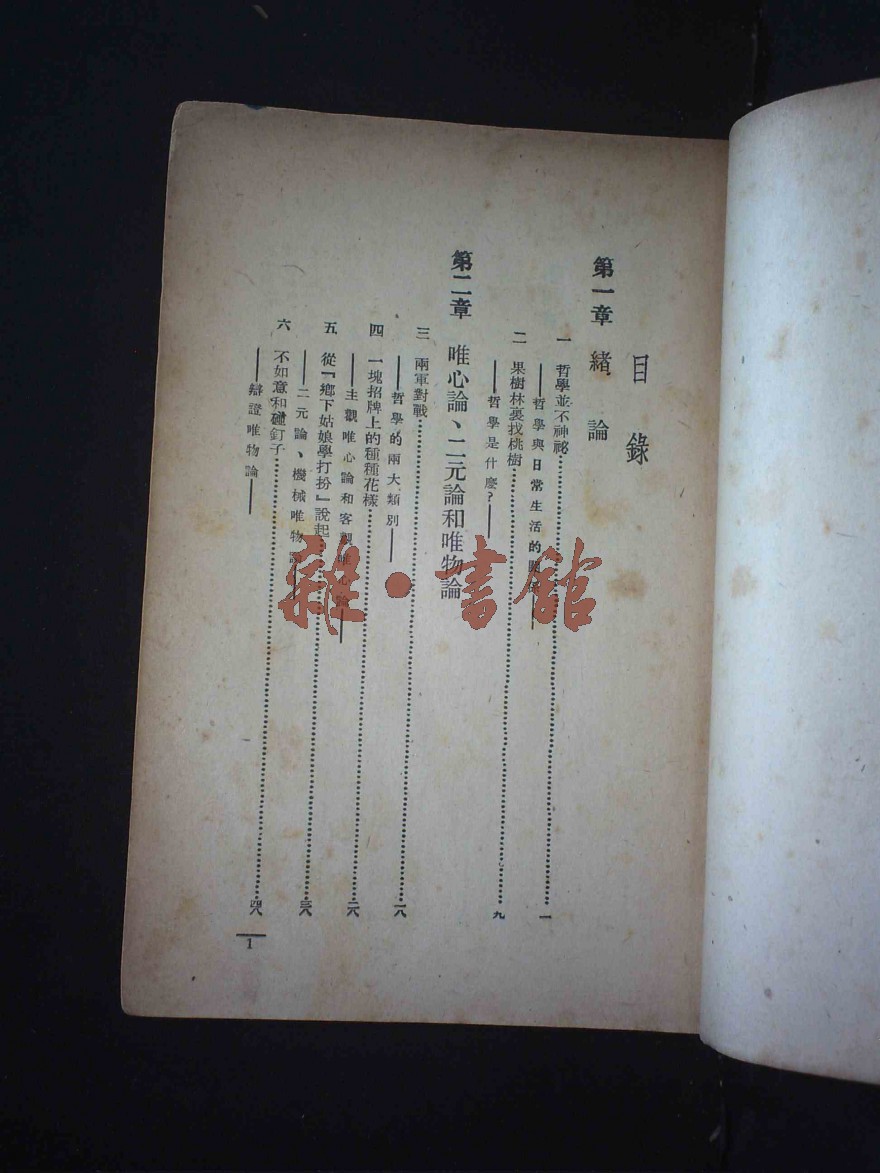 目錄
第一章 緒論
一 哲學並不神祕……一
——哲學與日常生活的關係——
二 果樹林裏找桃樹……九
——哲學是什麼？——
第二章 唯心論、二元論和唯物論
三 兩軍對戰……一八
——哲學的兩大類別——
四 一塊招牌上的種種花樣……二六
——主觀唯心論和客觀唯心論——
五 從『鄉下姑娘學打扮』說起……三六
——二元論、機械唯物論
六 不如意和碰釘子……四八
——辯證唯物論——
1
雜·書館